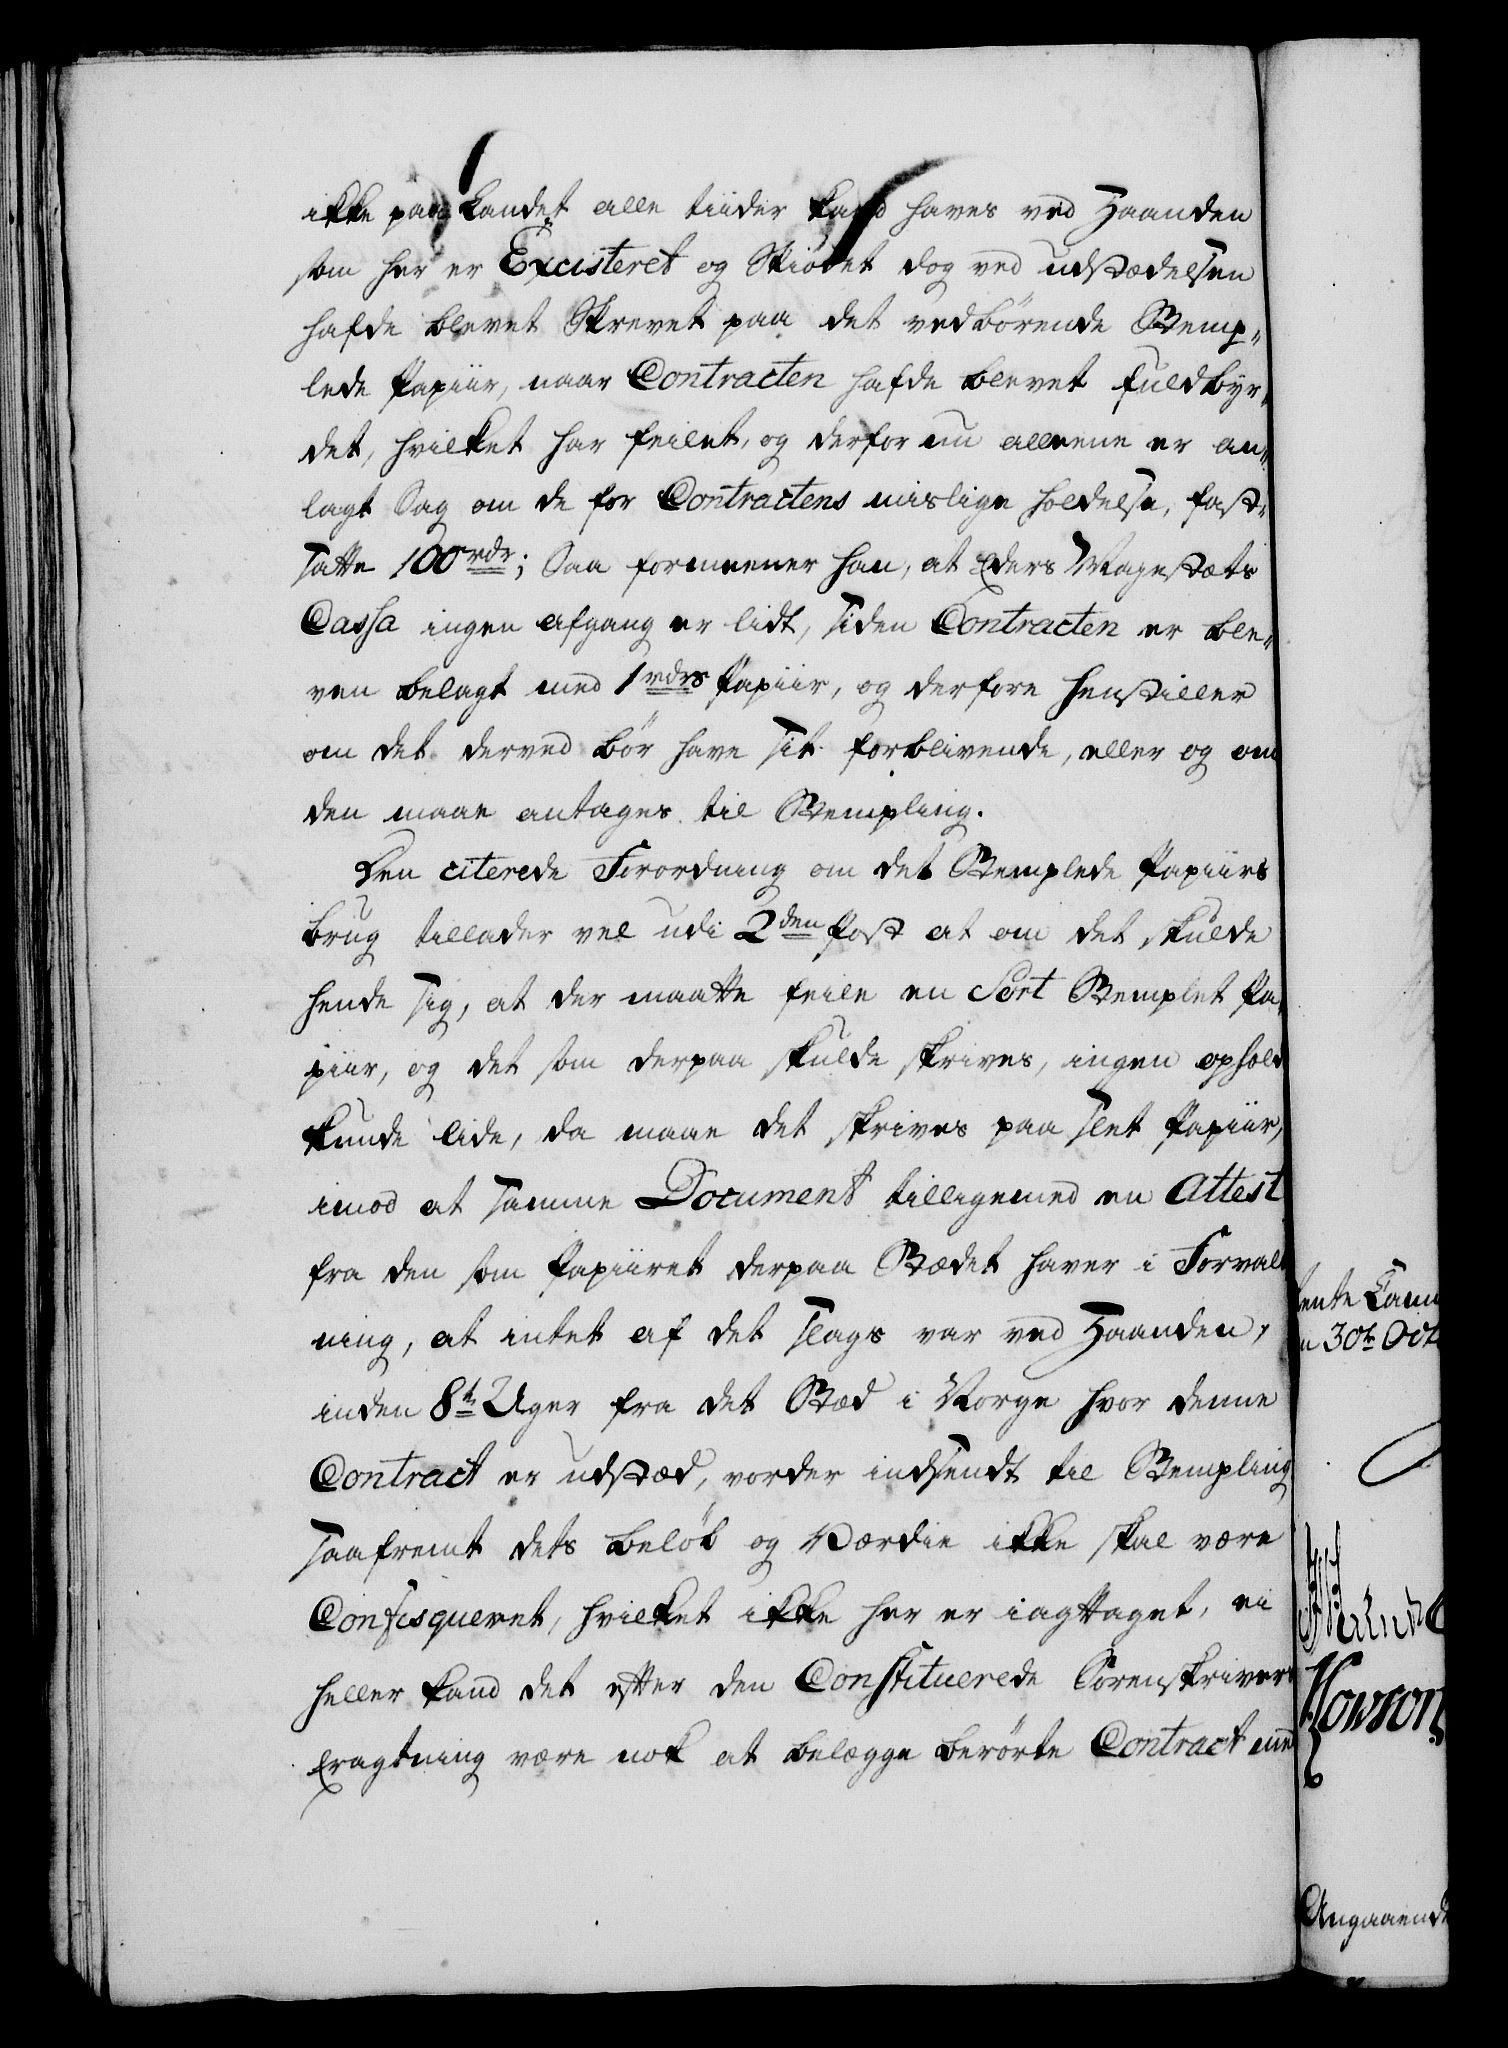 ikke paa Landet alle tiider kand haves ved Haanden
som her er Excisteret og Skiødet dog ved udstædelsen
hafde blevet Skrevet paa det vedbørende Stemp-
lede Papiir, naar Contracten hafde blevet fuldbyr-
det, hvilket har feilet, og derfor nu alleene er an-
lagt Sag om de for Contractens mislige holdelse, fast-
satte 100 rdr; Saa formeener han, at Eders Mayestæts
Cassa ingen afgang er lidt, siden Contracten er ble-
ven belagt med 1 rdrs Papiir, og derfore henstiller
om det derved bør have sit forblivende, eller og om
den maae antages til Stempling.
Den citerede Forordning om det Stemplede Papiirs
brug tillader vel udi 2den Post at om det skulde
hende sig, at der maatte feile en Sort Stemplet Pa-
piir, og det som derpaa skulde skrives, ingen ophold
kunde lide, da maae det skrives paa slet Papiir,
imod at samme Document tilligemed en Attest
fra den som Papiiret derpaa Stædet haver i Forvalt
ning, at intet af det slags var ved Haanden,
inden 8te Uger fra det Stæd i Norge hvor denne
Contract er udstæd, vorder indsendt til Stempling
saafremt dets beløb og Værdie ikke skal være
Confisqueret, hvilket ikke her er iagttaget, ei
heller kand det efter den Constituerede Sorenskrivers
Eragtning være nok at belægge berørte Contract med
ente Cam
n 30te Oct
Howson
Angaaende